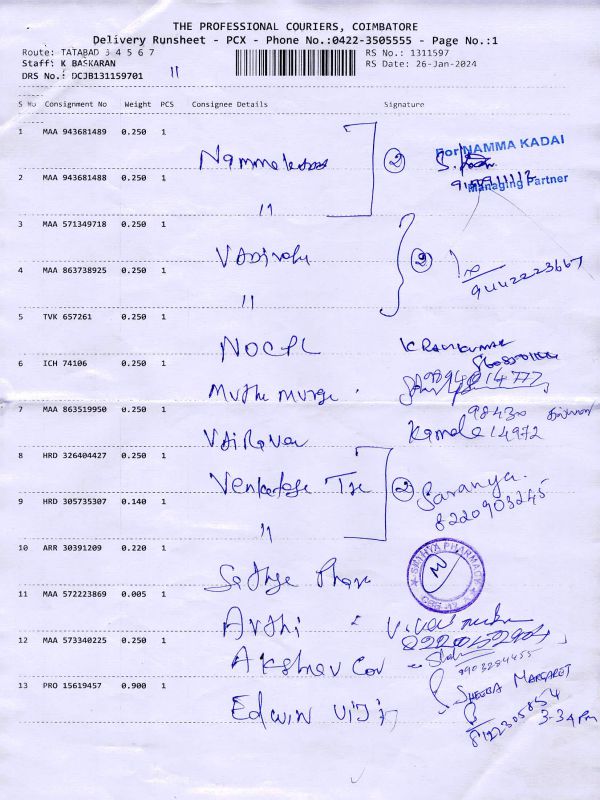 THE PROFESSIONAL COURIERS, COIMBATORE
Delivery Runsheet - PCX - Phone No.:0422-3505555 - Page No.:1
Route: TATABAD 3 4 5 6 7
RS No.: 1311597
Staff: K BASKARAN
RS Date: 26-Jan-2024
DRS No.: DCJB131159701
11
S No Consignment No Weight PCS Consignee Details Signature
1 MAA 943681489 0.250 1
For NAMMA KADAI
Managing Partner
2
2 MAA 943681488 0.250 1 "
3 MAA 571349718 0.250 1
2
9442223667
4 MAA 863738925 0.250 1 "
5 TVK 657261 0.250 1 NOCPL K RAVIKUMAR
6 ICH 74106 0.250 1 Muthu Muruga
9894814777
7 MAA 863519950 0.250 1 Vairava Kamala
98430
14972
8 HRD 326404427 0.250 1 Venkatesa Tex 2 Saranya.
8220903245
9 HRD 305735307 0.140 1 "
10 ARR 30391209 0.220 1 Sathya Pharm
SATHYA PHARMACY
11 MAA 572223869 0.005 1 Arthi
12 MAA 573340225 0.250 1 Akshav Cov
9903284455
13 PRO 15619457 0.900 1 Edwin Viji
SHEEBA MARGARET
8122305854
3-34 PM